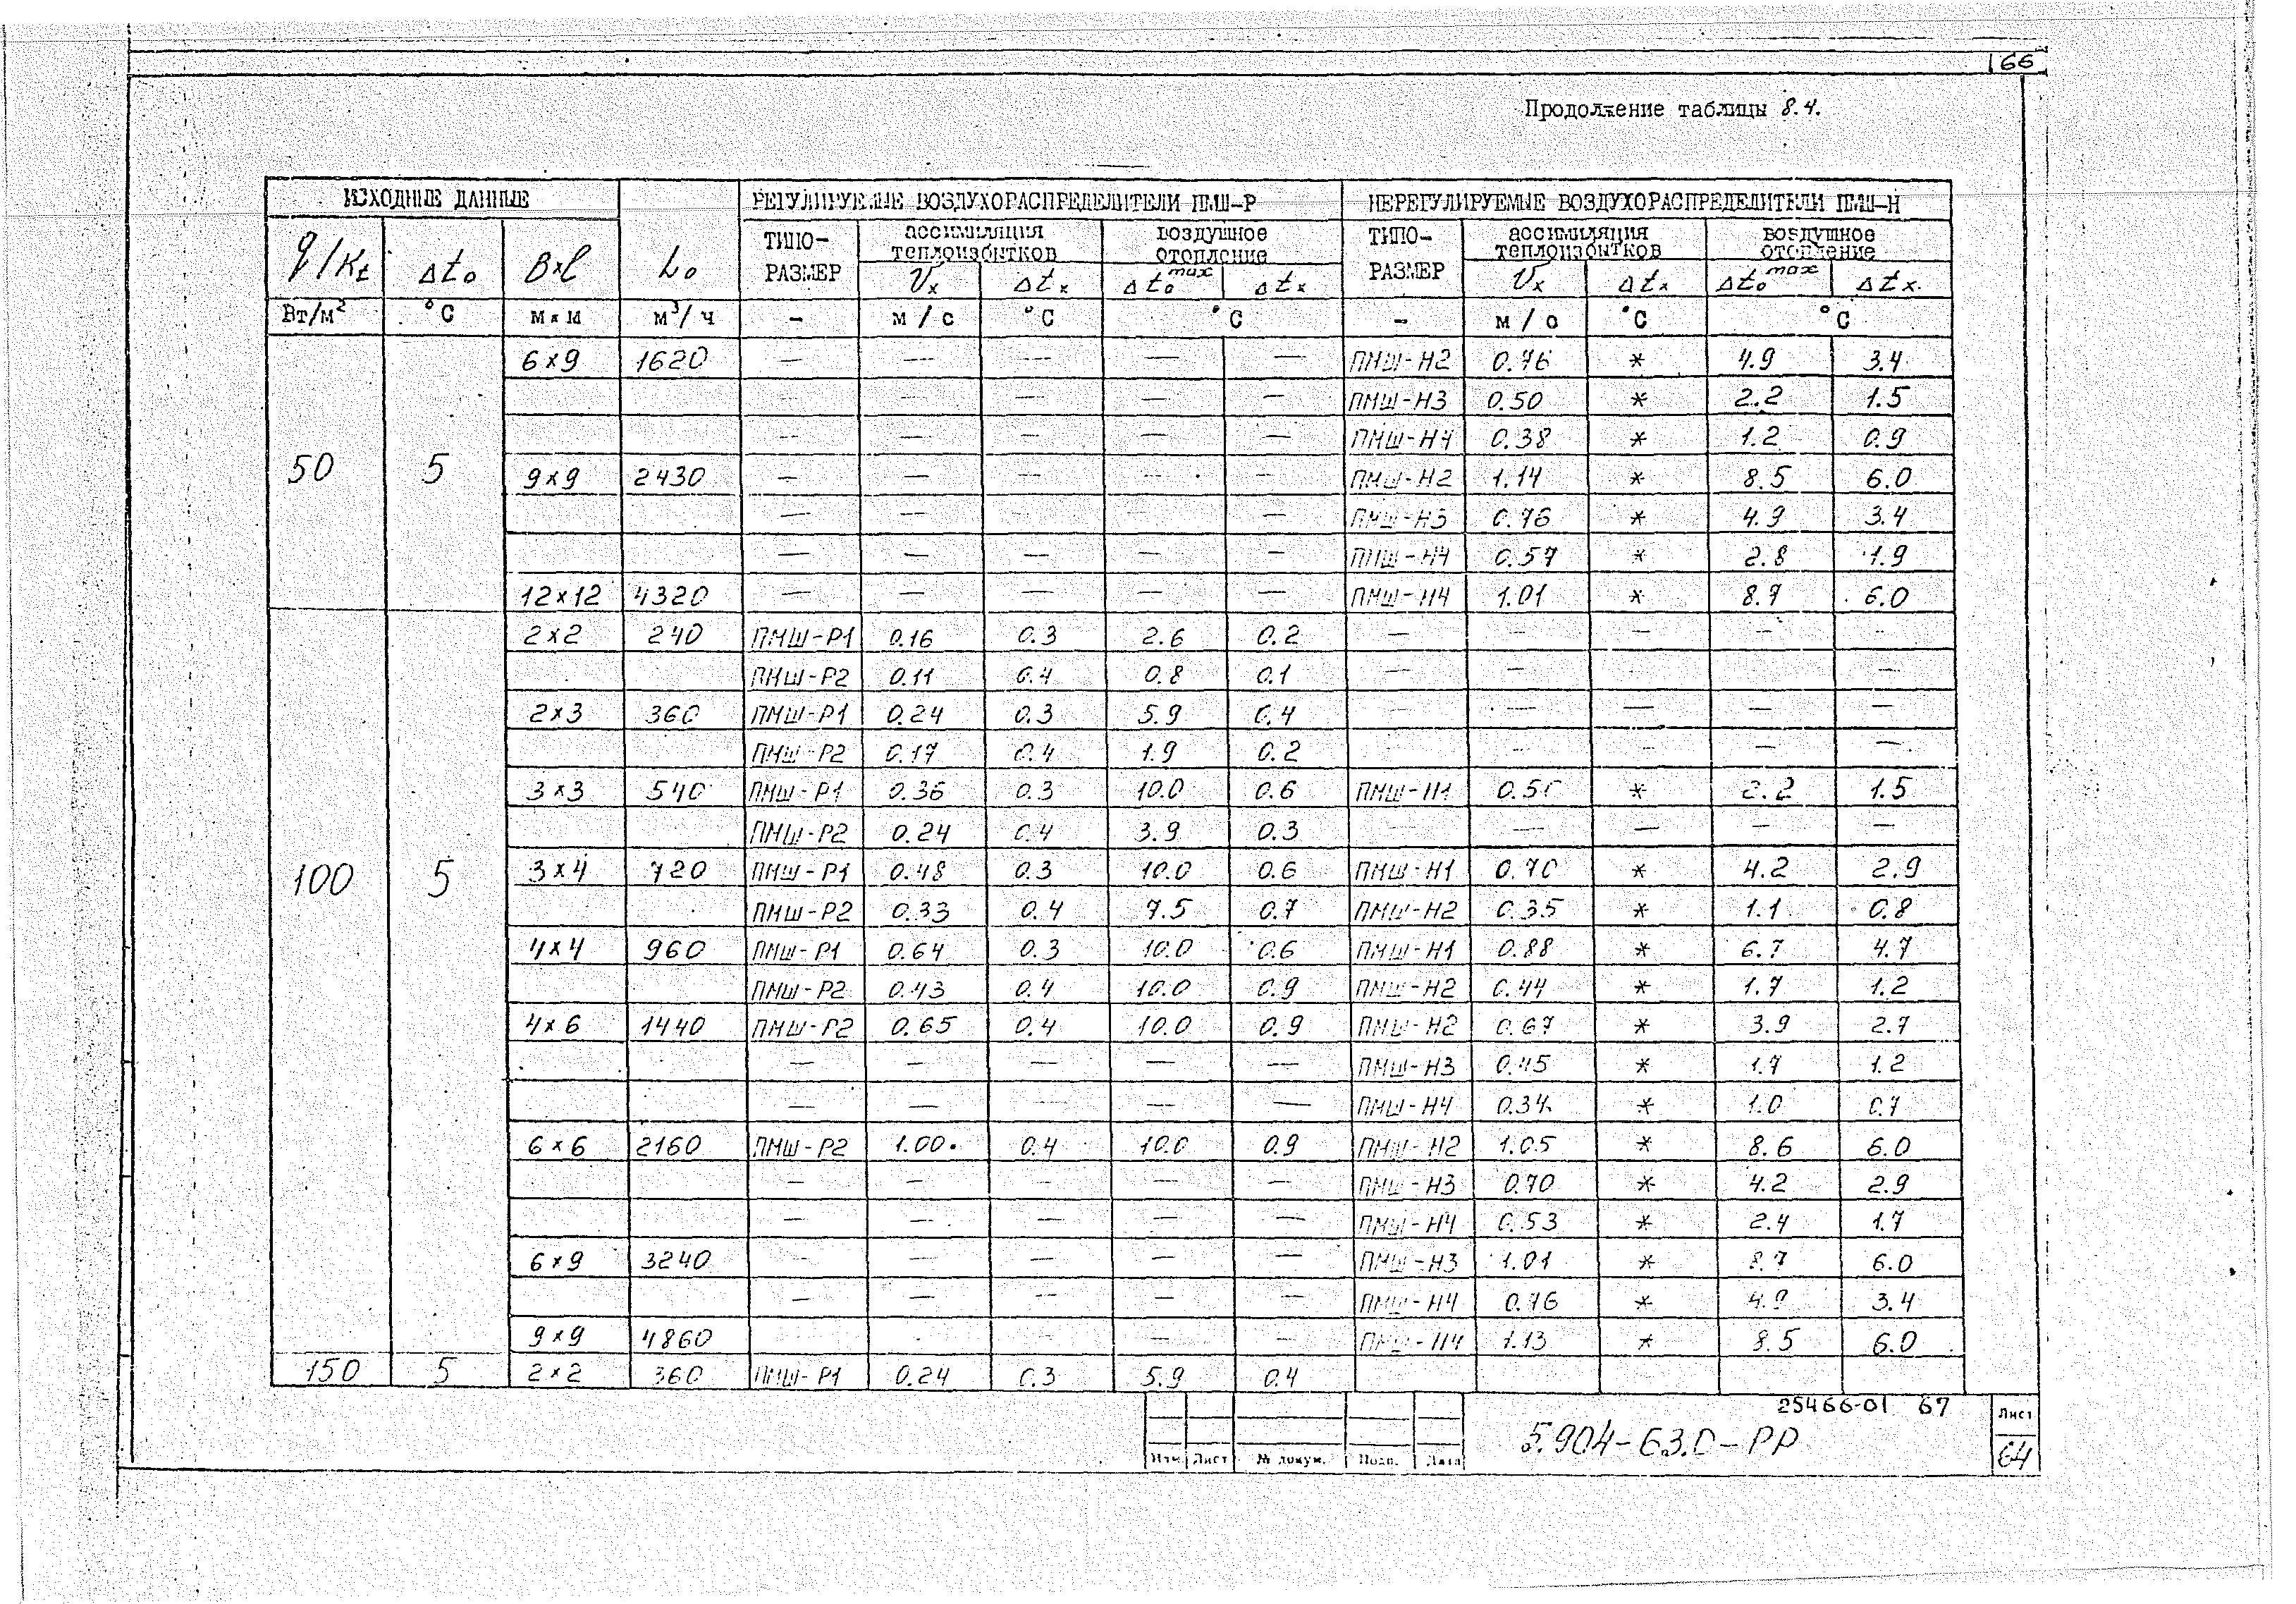 66
Продолжение таблицы 8.4.
ИСХОДНЫЕ ДАННЫЕ РЕГУЛИРУЕМЫЕ ВОЗДУХОРАСПРЕДЕЛИТЕЛИ ПМШ-Р НЕРЕГУЛИРУЕМЫЕ ВОЗДУХОРАСПРЕДЕЛИТЕЛИ ПМШ-Н
q/Kt Δt₀ B×l L₀ ТИПО-РАЗМЕР ассимиляция теплоизбытков воздушное отопление ТИПО-РАЗМЕР ассимиляция теплоизбытков воздушное отопление
Vx Δtx Δt₀max Δtx Vx Δtx Δt₀max Δtx
Вт/м² °С м×м м³/ч – м/с °С °С – м/с °С °С
50 5 6×9 1620 — — — — — ПМШ-Н2 0.76 * 4.9 3.4
— — — — — ПМШ-Н3 0.50 * 2.2 1.5
— — — — — ПМШ-Н4 0.38 * 1.2 0.9
9×9 2430 — — — — — ПМШ-Н2 1.14 * 8.5 6.0
— — — — — ПМШ-Н3 0.76 * 4.9 3.4
— — — — — ПМШ-Н4 0.57 * 2.8 1.9
12×12 4320 — — — — — ПМШ-Н4 1.01 * 8.7 6.0
100 5 2×2 240 ПМШ-Р1 0.16 0.3 2.6 0.2 — — — — —
ПМШ-Р2 0.11 0.4 0.8 0.1 — — — — —
2×3 360 ПМШ-Р1 0.24 0.3 5.9 0.4 — — — — —
ПМШ-Р2 0.17 0.4 1.9 0.2 — — — — —
3×3 540 ПМШ-Р1 0.36 0.3 10.0 0.6 ПМШ-Н1 0.50 * 2.2 1.5
ПМШ-Р2 0.24 0.4 3.9 0.3 — — — — —
3×4 720 ПМШ-Р1 0.48 0.3 10.0 0.6 ПМШ-Н1 0.70 * 4.2 2.9
ПМШ-Р2 0.33 0.4 7.5 0.7 ПМШ-Н2 0.35 * 1.1 0.8
4×4 960 ПМШ-Р1 0.64 0.3 10.0 0.6 ПМШ-Н1 0.88 * 6.7 4.7
ПМШ-Р2 0.43 0.4 10.0 0.9 ПМШ-Н2 0.44 * 1.7 1.2
4×6 1440 ПМШ-Р2 0.65 0.4 10.0 0.9 ПМШ-Н2 0.67 * 3.9 2.7
— — — — — ПМШ-Н3 0.45 * 1.7 1.2
— — — — — ПМШ-Н4 0.34 * 1.0 0.7
6×6 2160 ПМШ-Р2 1.00 0.4 10.0 0.9 ПМШ-Н2 1.05 * 8.6 6.0
— — — — — ПМШ-Н3 0.70 * 4.2 2.9
— — — — — ПМШ-Н4 0.53 * 2.4 1.7
6×9 3240 — — — — — ПМШ-Н3 1.01 * 8.7 6.0
— — — — — ПМШ-Н4 0.76 * 4.9 3.4
9×9 4860 — — — — — ПМШ-Н4 1.13 * 8.5 6.0
150 5 2×2 360 ПМШ-Р1 0.24 0.3 5.9 0.4
25466-01 67
5.904-63.0-РР
Лист
64
Изм Лист № докум. Подп. Дата